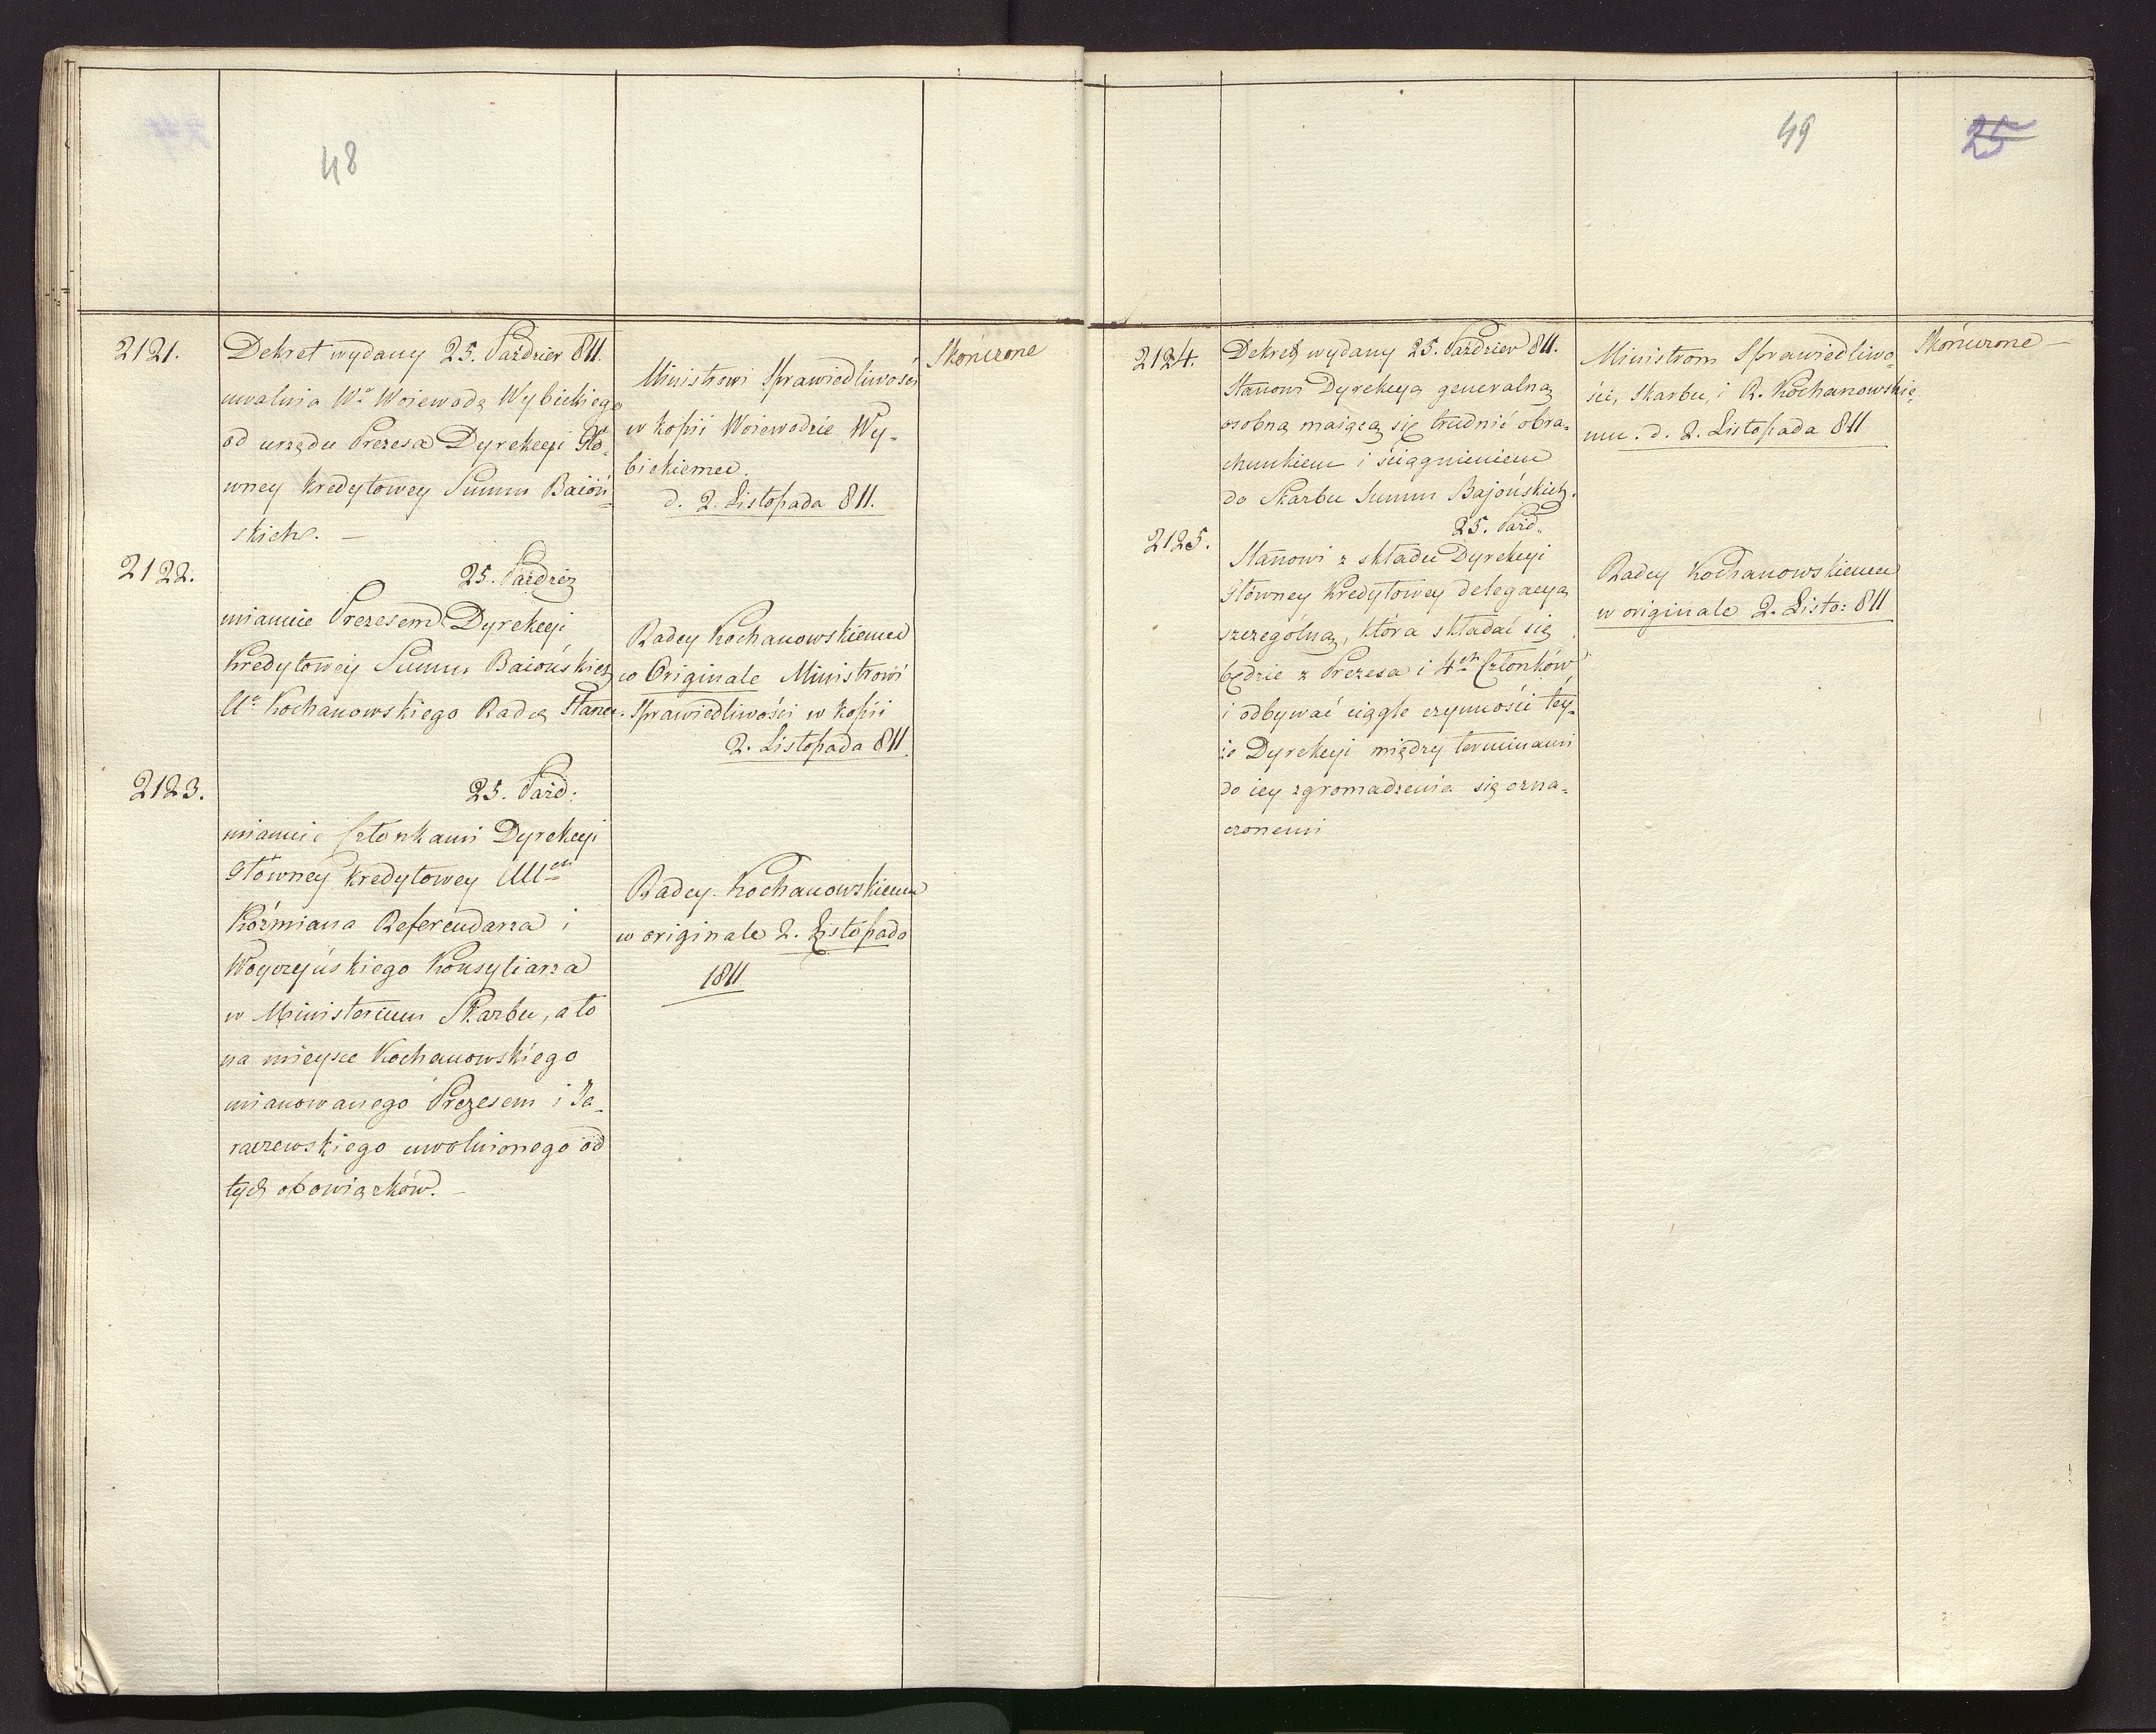 48
2121.
Dekret wydany 25. Paździer 811.
uwalnia Wo Woiewodę Wybickiego
od urzędu Prezesa Dyrekcyi Głó-
wney Kredytowey Summ Baioń-
skich. —
Ministrowi Sprawiedliwości
w kopii Woiewodzie Wy-
bickiemu.
d. 2. Listopada 811.
Skończone
2122.
25. Paździer
mianuie Prezesem Dyrekcyi
Kredytowey Summ Baiońskich
Ur Kochanowskiego Radcę Stanu.
Radcy Kochanowskiemu
w Originale Ministrowi
Sprawiedliwości w kopii
2. Listopada 811
2123.
25. Paźd:
mianuie Członkami Dyrekcyi
Główney Kredytowey UUch
Koźmiana Referendarza i
Woyczyńskiego Konsyliarza
w Ministerium Skarbu, a to
na mieysce Kochanowskiego
mianowanego Prezesem i Ta-
raczewskiego uwolnionego od
tych obowiązków. —
Radcy Kochanowskiemu
w originale 2. Listopada
1811
49
25
2124.
Dekret wydany 25. Paździer 811.
Stanowi Dyrekcyą generalną
osobną maiącą się trudnić obra-
chunkiem i ściągnieniem
do Skarbu Summ Bajońskich.
Ministrom Sprawiedliwo-
ści, Skarbu, i R. Kochanowskie-
mu. d. 2. Listopada 811
Skończone —
2125.
25. Paźd.
Stanowi z składu Dyrekcyi
Główney Kredytowey delegacyą
szczególną, która składać się
będzie z Prezesa i 4ch Członków
i odbywać ciągle czynności tey-
że Dyrekcyi między terminami
do iey zgromadzenia się ozna-
czonemi
Radcy Kochanowskiemu
w originale 2. Listo: 811